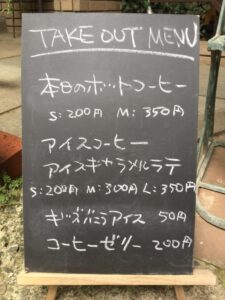 TAKE OUT MENU
本日のホットコーヒー
S:200円 M:350円
アイスコーヒー
アイスキャラメルラテ
S:200円 M:300円 L:350円
キッズバニラアイス 50円
コーヒーゼリー 200円